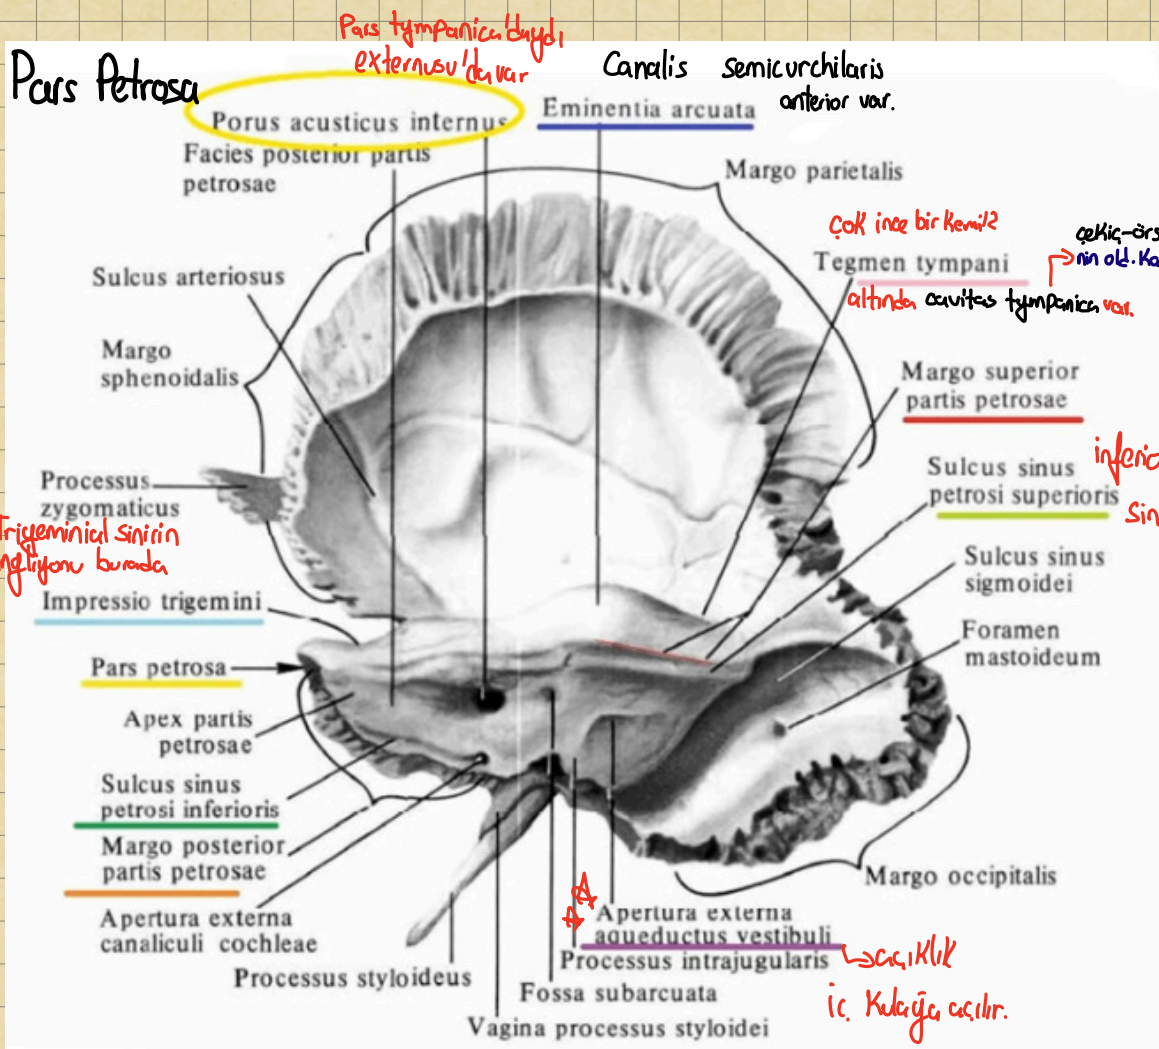 Pars tympanica'daydı
externusu'da var
Pars Petrosa
Canalis semicurchilaris
anterior var.
Porus acusticus internus
Eminentia arcuata
Facies posterior partis
petrosae
Margo parietalis
çok ince bir kemik
çekiç-örs
nin old. Ka
Tegmen tympani
altında cavitas tympanica var.
Sulcus arteriosus
Margo
sphenoidalis
Margo superior
partis petrosae
inferio
Sulcus sinus
petrosi superioris
Sin
Processus
zygomaticus
Trigeminial sinirin
ngliyonu burada
Sulcus sinus
sigmoidei
Impressio trigemini
Foramen
mastoideum
Pars petrosa
Apex partis
petrosae
Sulcus sinus
petrosi inferioris
Margo posterior
partis petrosae
Margo occipitalis
Apertura externa
canaliculi cochleae
Apertura externa
aqueductus vestibuli
açıklık
Processus intrajugularis
iç kulağa açılır.
Processus styloideus
Fossa subarcuata
Vagina processus styloidei